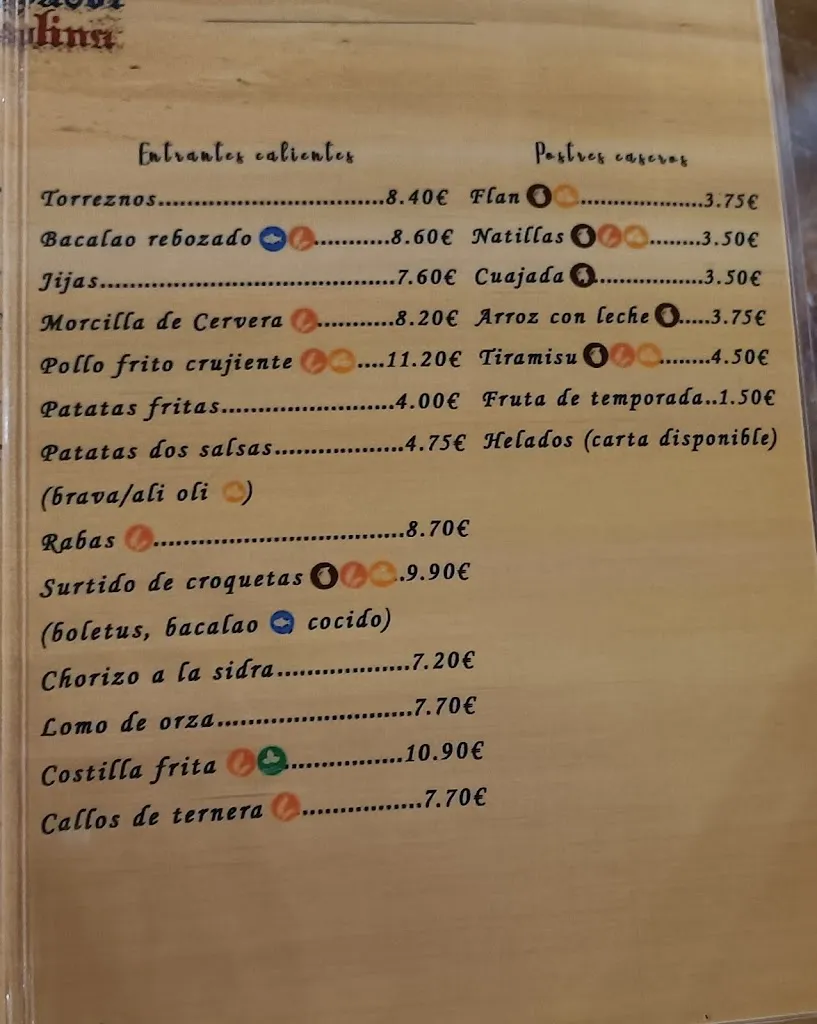 lina
Entrantes calientes
Torreznos..................................8.40€
Bacalao rebozado ...........8.60€
Jijas...........................................7.60€
Morcilla de Cervera ...........8.20€
Pollo frito crujiente ....11.20€
Patatas fritas.........................4.00€
Patatas dos salsas...................4.75€
(brava/ali oli )
Rabas .....................................8.70€
Surtido de croquetas .9.90€
(boletus, bacalao cocido)
Chorizo a la sidra...................7.20€
Lomo de orza...........................7.70€
Costilla frita .................10.90€
Callos de ternera .................7.70€
Postres caseros
Flan ...................3.75€
Natillas ........3.50€
Cuajada ...............3.50€
Arroz con leche .....3.75€
Tiramisu ........4.50€
Fruta de temporada..1.50€
Helados (carta disponible)